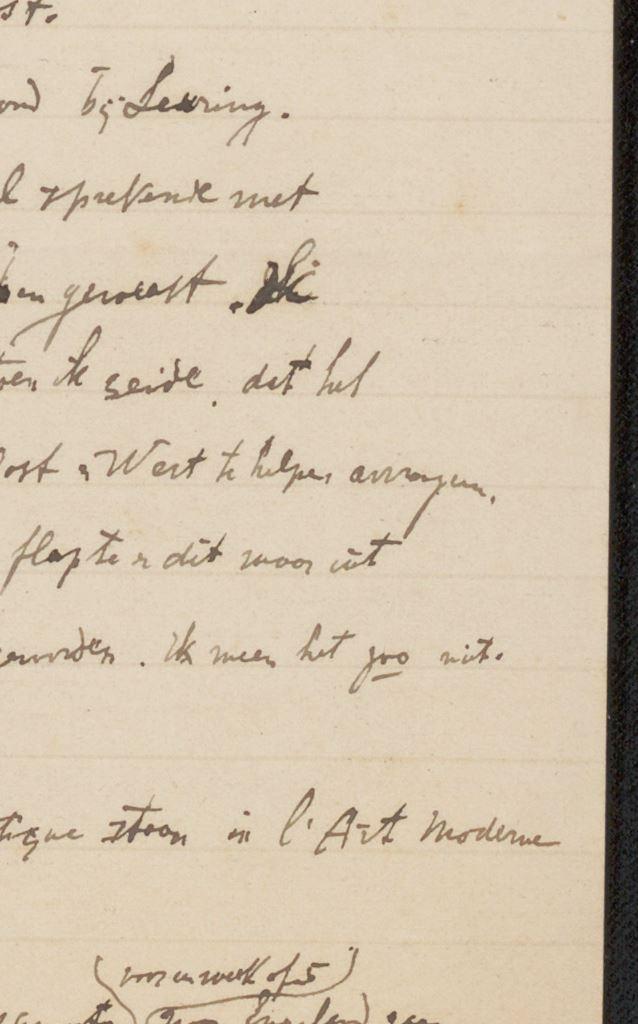 st.
bij Leuring.
sprekende met
ben geweest. Ik
toen ik seide, dat het
Oost en West te helpen arrangeeren,
flapte er dit maar uit
geworden. Ik meen het zoo niet.
tique staan in l'Art Moderne
(voor een week of 5)
Engeland